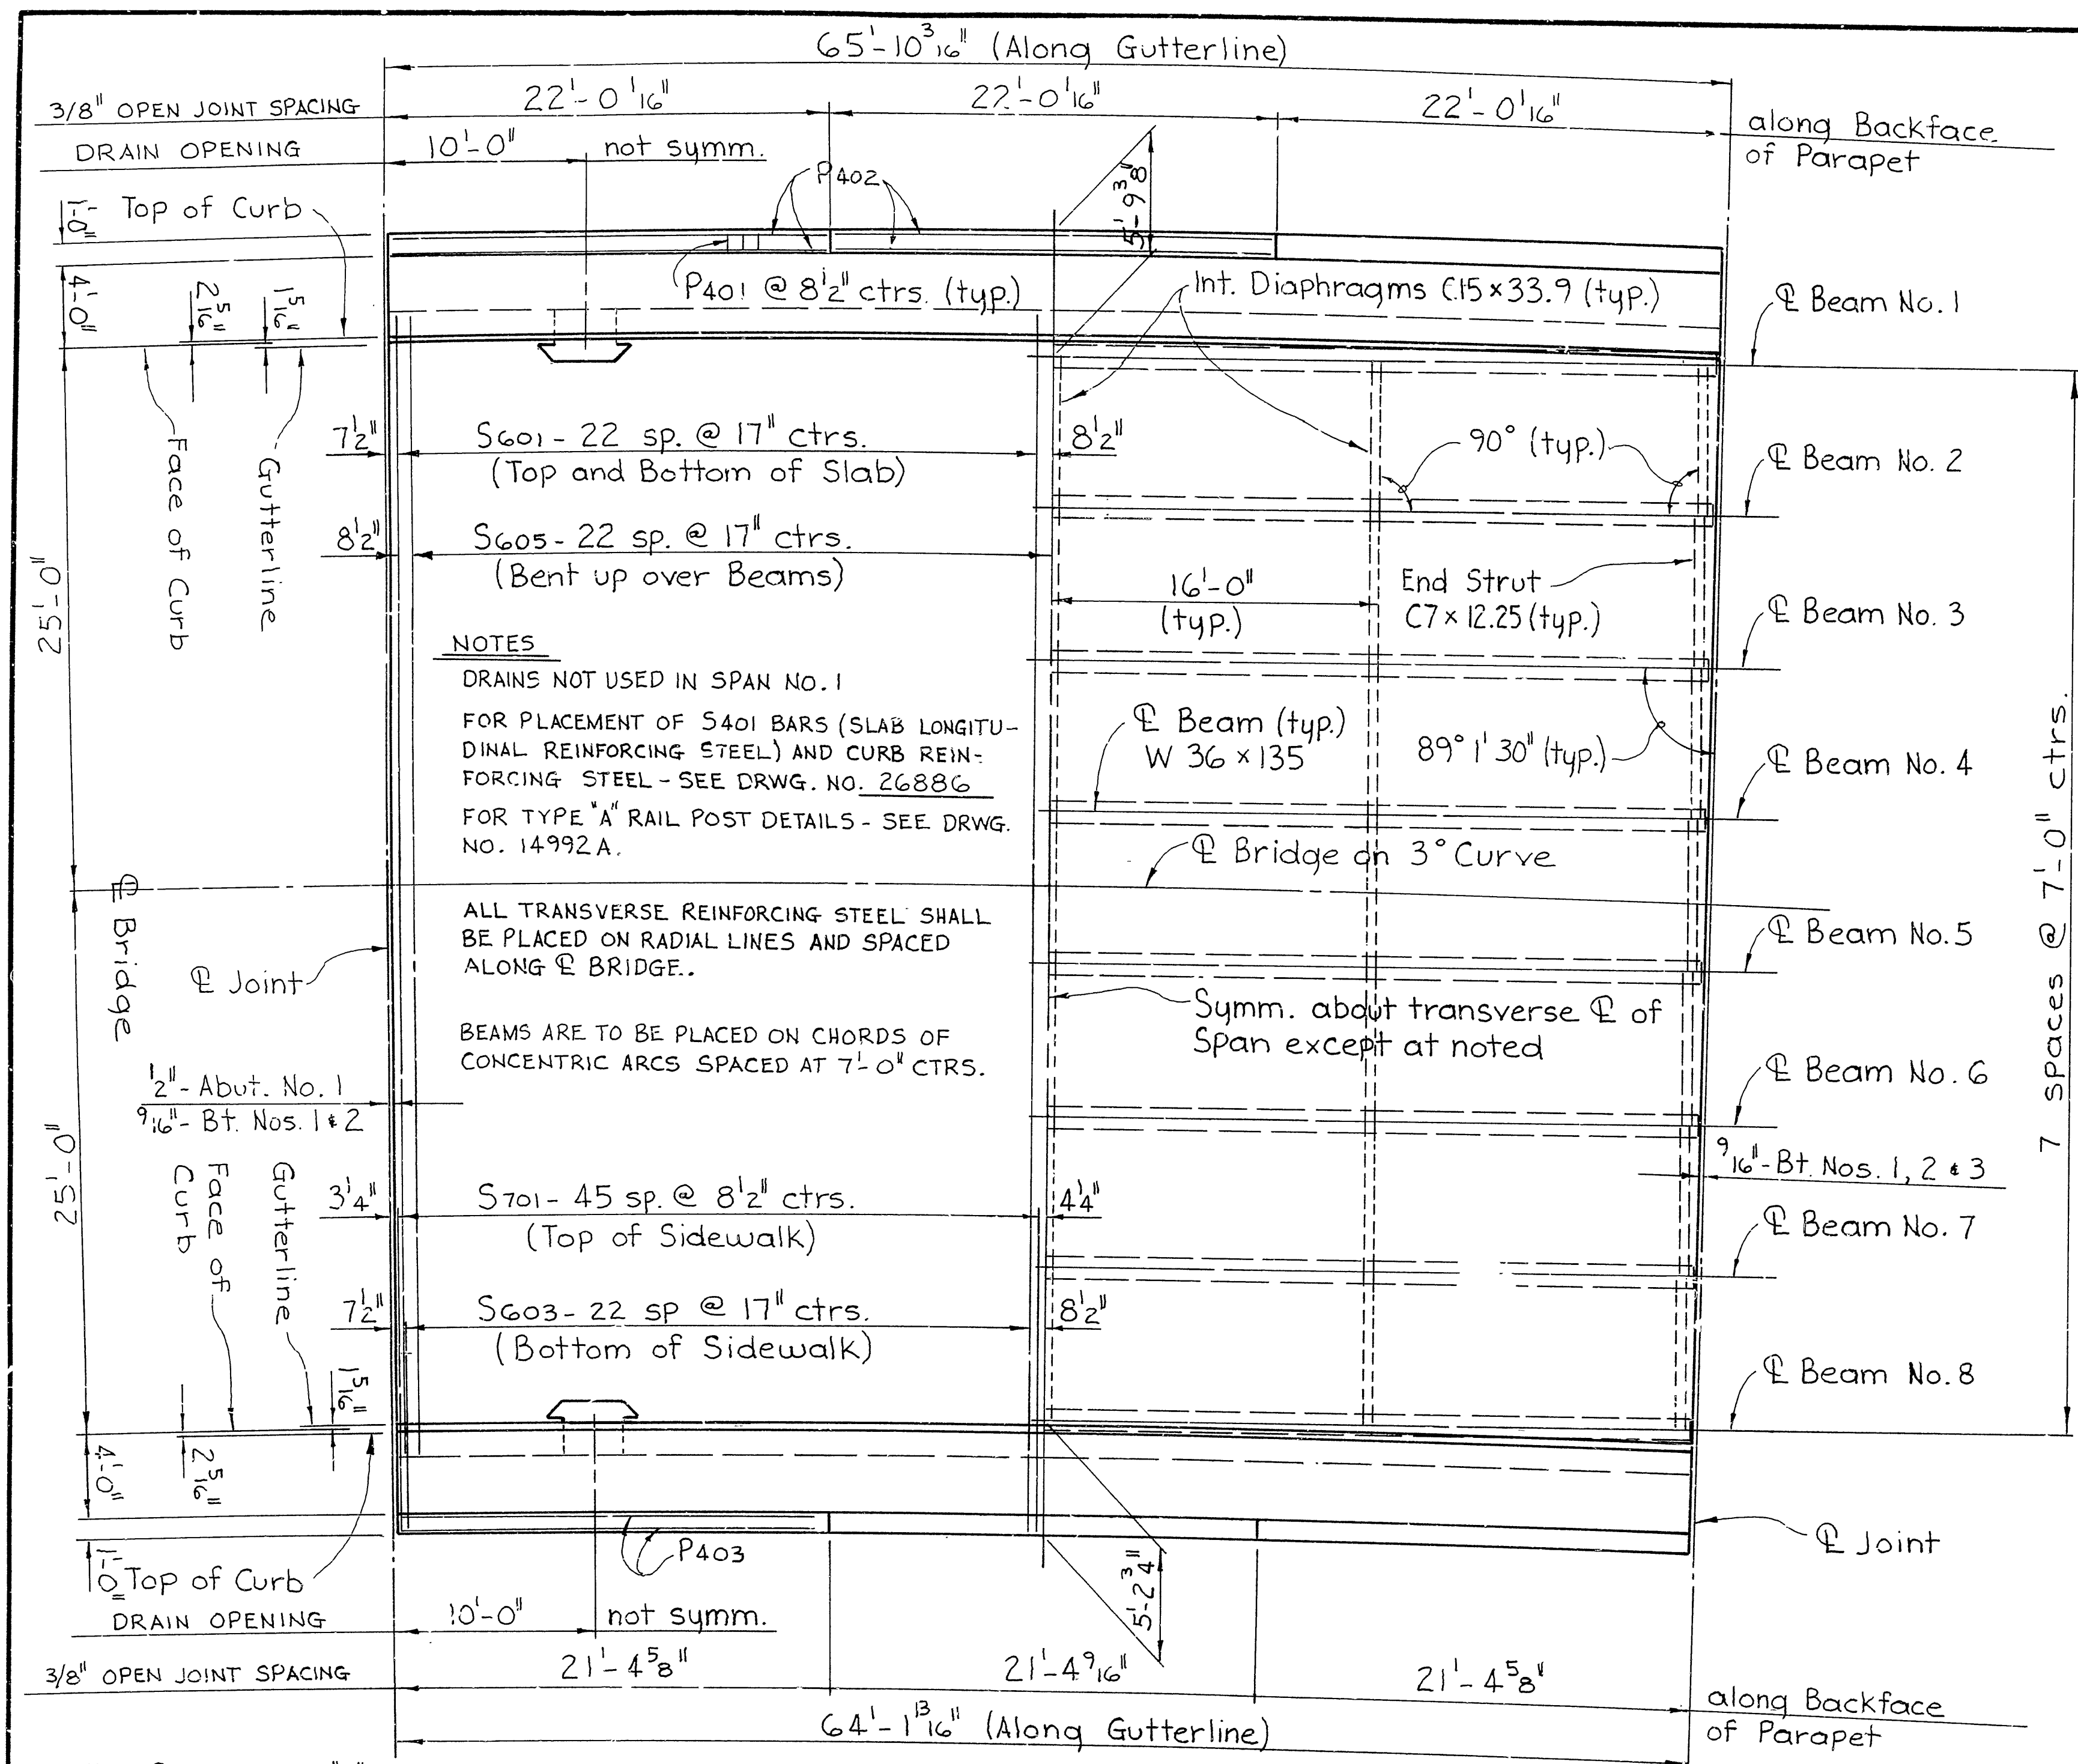 65'-10 3/16" (Along Gutterline)
3/8" OPEN JOINT SPACING
22'-0 1/16"
22'-0 1/16"
22'-0 1/16"
along Backface
of Parapet
DRAIN OPENING
10'-0"
not symm.
P402
5'-9 3/8"
1'-0"
Top of Curb
P401 @ 8 1/2" ctrs. (typ.)
Int. Diaphragms C15 x 33.9 (typ.)
4'-0"
2 5/16"
1 5/16"
℄ Beam No. 1
Face of Curb
Gutterline
7 1/2"
S601 - 22 sp. @ 17" ctrs.
(Top and Bottom of Slab)
8 1/2"
90° (typ.)
℄ Beam No. 2
8 1/2"
S605 - 22 sp. @ 17" ctrs.
(Bent up over Beams)
25'-0"
16'-0"
(typ.)
End Strut
C7 x 12.25 (typ.)
℄ Beam No. 3
NOTES
DRAINS NOT USED IN SPAN NO. 1
FOR PLACEMENT OF S401 BARS (SLAB LONGITU-
DINAL REINFORCING STEEL) AND CURB REIN-
FORCING STEEL - SEE DRWG. NO. 26886
FOR TYPE "A" RAIL POST DETAILS - SEE DRWG.
NO. 14992A.
℄ Beam (typ.)
W 36 x 135
89° 1' 30" (typ.)
℄ Beam No. 4
7 spaces @ 7'-0" ctrs.
℄ Bridge on 3° Curve
℄ Bridge
ALL TRANSVERSE REINFORCING STEEL SHALL
BE PLACED ON RADIAL LINES AND SPACED
ALONG ℄ BRIDGE..
℄ Beam No. 5
℄ Joint
Symm. about transverse ℄ of
Span except at noted
BEAMS ARE TO BE PLACED ON CHORDS OF
CONCENTRIC ARCS SPACED AT 7'-0" CTRS.
℄ Beam No. 6
1/2" - Abut. No. 1
9/16" - Bt. Nos. 1 & 2
25'-0"
9/16" - Bt. Nos. 1, 2 & 3
Face of
Curb
Gutterline
3 1/4"
S701 - 45 sp. @ 8 1/2" ctrs.
(Top of Sidewalk)
4 1/4"
℄ Beam No. 7
7 1/2"
S603 - 22 sp @ 17" ctrs.
(Bottom of Sidewalk)
8 1/2"
℄ Beam No. 8
1 5/16"
2 5/16"
4'-0"
P403
5'-2 3/4"
℄ Joint
1'-0"
Top of Curb
DRAIN OPENING
10'-0"
not symm.
3/8" OPEN JOINT SPACING
21'-4 5/8"
21'-4 9/16"
21'-4 5/8"
along Backface
of Parapet
64'-1 13/16" (Along Gutterline)